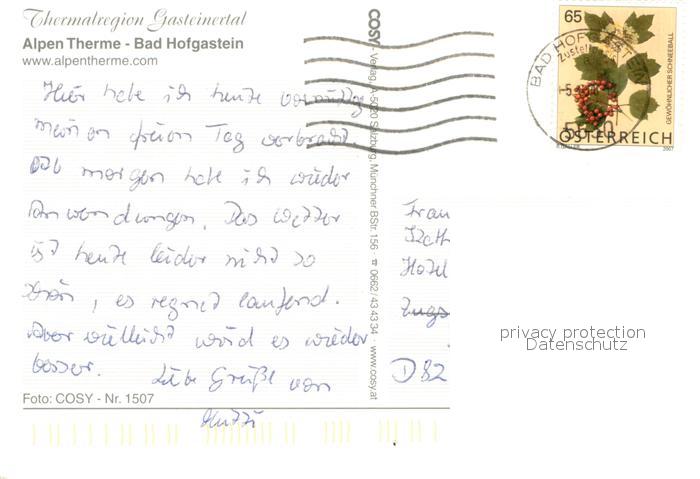 Thermalregion Gasteinertal
Alpen Therme - Bad Hofgastein
www.alpentherme.com
Hier habe ich heute vormittag
meinen freien Tag verbracht.
Ab morgen habe ich wieder
Anwendungen. Das Wetter
ist heute leider nicht so
schön, es regnet laufend.
Aber vielleicht wird es wieder
besser. Liebe Grüße von
Mutti
Foto: COSY - Nr. 1507
COSY - Verlag, A-5020 Salzburg, Münchner BStr. 156 ☎ 0662/43 43 34 · www.cosy.at
65
GEWÖHNLICHER SCHNEEBALL
ÖSTERREICH
2007
BAD HOFGASTEIN
Zustell
5630
Frau
Kath
Hotel
Zugs
D 82
privacy protection
Datenschutz